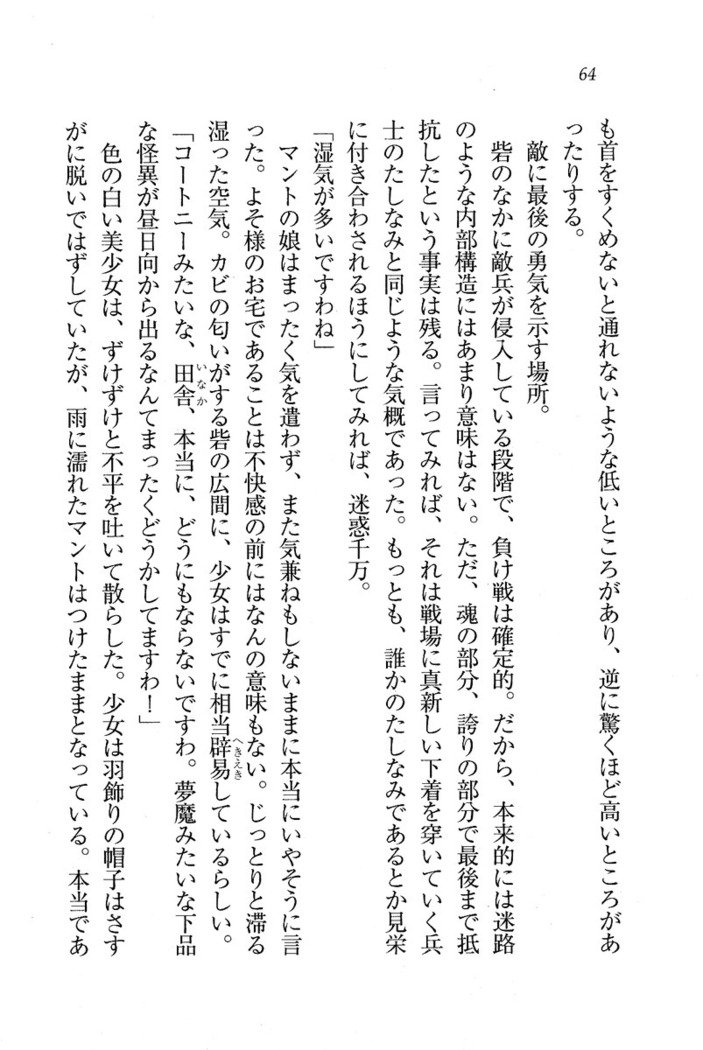 64
も首をすくめないと通れないような低いところがあり、逆に驚くほど高いところがあ
ったりする。
敵に最後の勇気を示す場所。
砦のなかに敵兵が侵入している段階で、負け戦は確定的。だから、本来的には迷路
のような内部構造にはあまり意味はない。ただ、魂の部分、誇りの部分で最後まで抵
抗したという事実は残る。言ってみれば、それは戦場に真新しい下着を穿いていく兵
士のたしなみと同じような気概であった。もっとも、誰かのたしなみであるとか見栄
に付き合わされるほうにしてみれば、迷惑千万。
「湿気が多いですわね」
マントの娘はまったく気を遣わず、また気兼ねもしないままに本当にいやそうに言
った。よそ様のお宅であることは不快感の前にはなんの意味もない。じっとりと滞る
湿った空気。カビの匂いがする砦の広間に、少女はすでに相当辟易しているらしい。
「コートニーみたいな、田舎、本当に、どうにもならないですわ。夢魔みたいな下品
な怪異が昼日向から出るなんてまったくどうかしてますわ！」
色の白い美少女は、ずけずけと不平を吐いて散らした。少女は羽飾りの帽子はさす
がに脱いではずしていたが、雨に濡れたマントはつけたままとなっている。本当であ